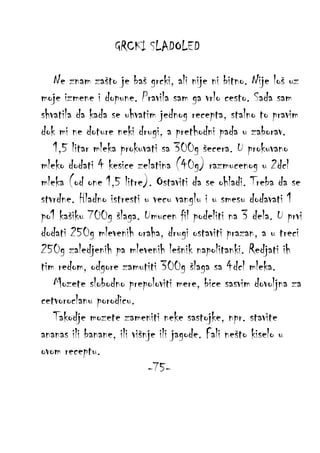 GRCKI SLADOLED
Ne znam zašto je baš grcki, ali nije ni bitno. Nije loš uz
moje izmene i dopune. Pravila sam ga vrlo cesto. Sada sam
shvatila da kada se uhvatim jednog recepta, stalno to pravim
dok mi ne doture neki drugi, a prethodni pada u zaborav.
1,5 litar mleka prokuvati sa 300g šecera. U prokuvano
mleko dodati 4 kesice zelatina (40g) razmucenog u 2dcl
mleka (od one 1,5 litre). Ostaviti da se ohladi. Treba da se
stvrdne. Hladno istresti u vecu vanglu i u smesu dodavati 1
po1 kašiku 700g šlaga. Umucen fil podeliti na 3 dela. U prvi
dodati 250g mlevenih oraha, drugi ostaviti prazan, a u treci
250g zaledjenih pa mlevenih lešnik napolitanki. Redjati ih
tim redom, odgore zamutiti 300g šlaga sa 4dcl mleka.
Mozete slobodno prepoloviti mere, bice sasvim dovoljna za
cetvoroclanu porodicu.
Takodje mozete zameniti neke sastojke, npr. stavite
ananas ili banane, ili višnje ili jagode. Fali nešto kiselo u
ovom receptu.
-75-